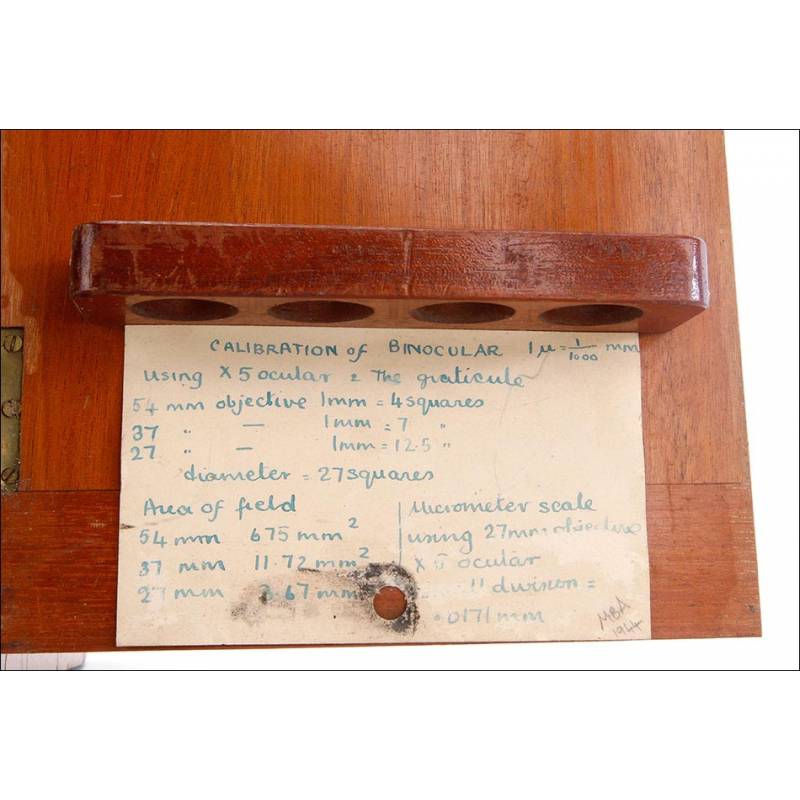 CALIBRATION of BINOCULAR 1 µ = 1/1000 mm
using X 5 ocular & The graticule
54 mm objective 1mm = 4 squares
37 " — 1mm = 7 "
27 " — 1mm = 12.5 "
diameter = 27 squares
Area of field
54 mm 675 mm²
37 mm 11.72 mm²
27 mm 3.67 mm
Micrometer scale
using 27mm objective
X 5 ocular
division =
.0171 mm
MBA
1944